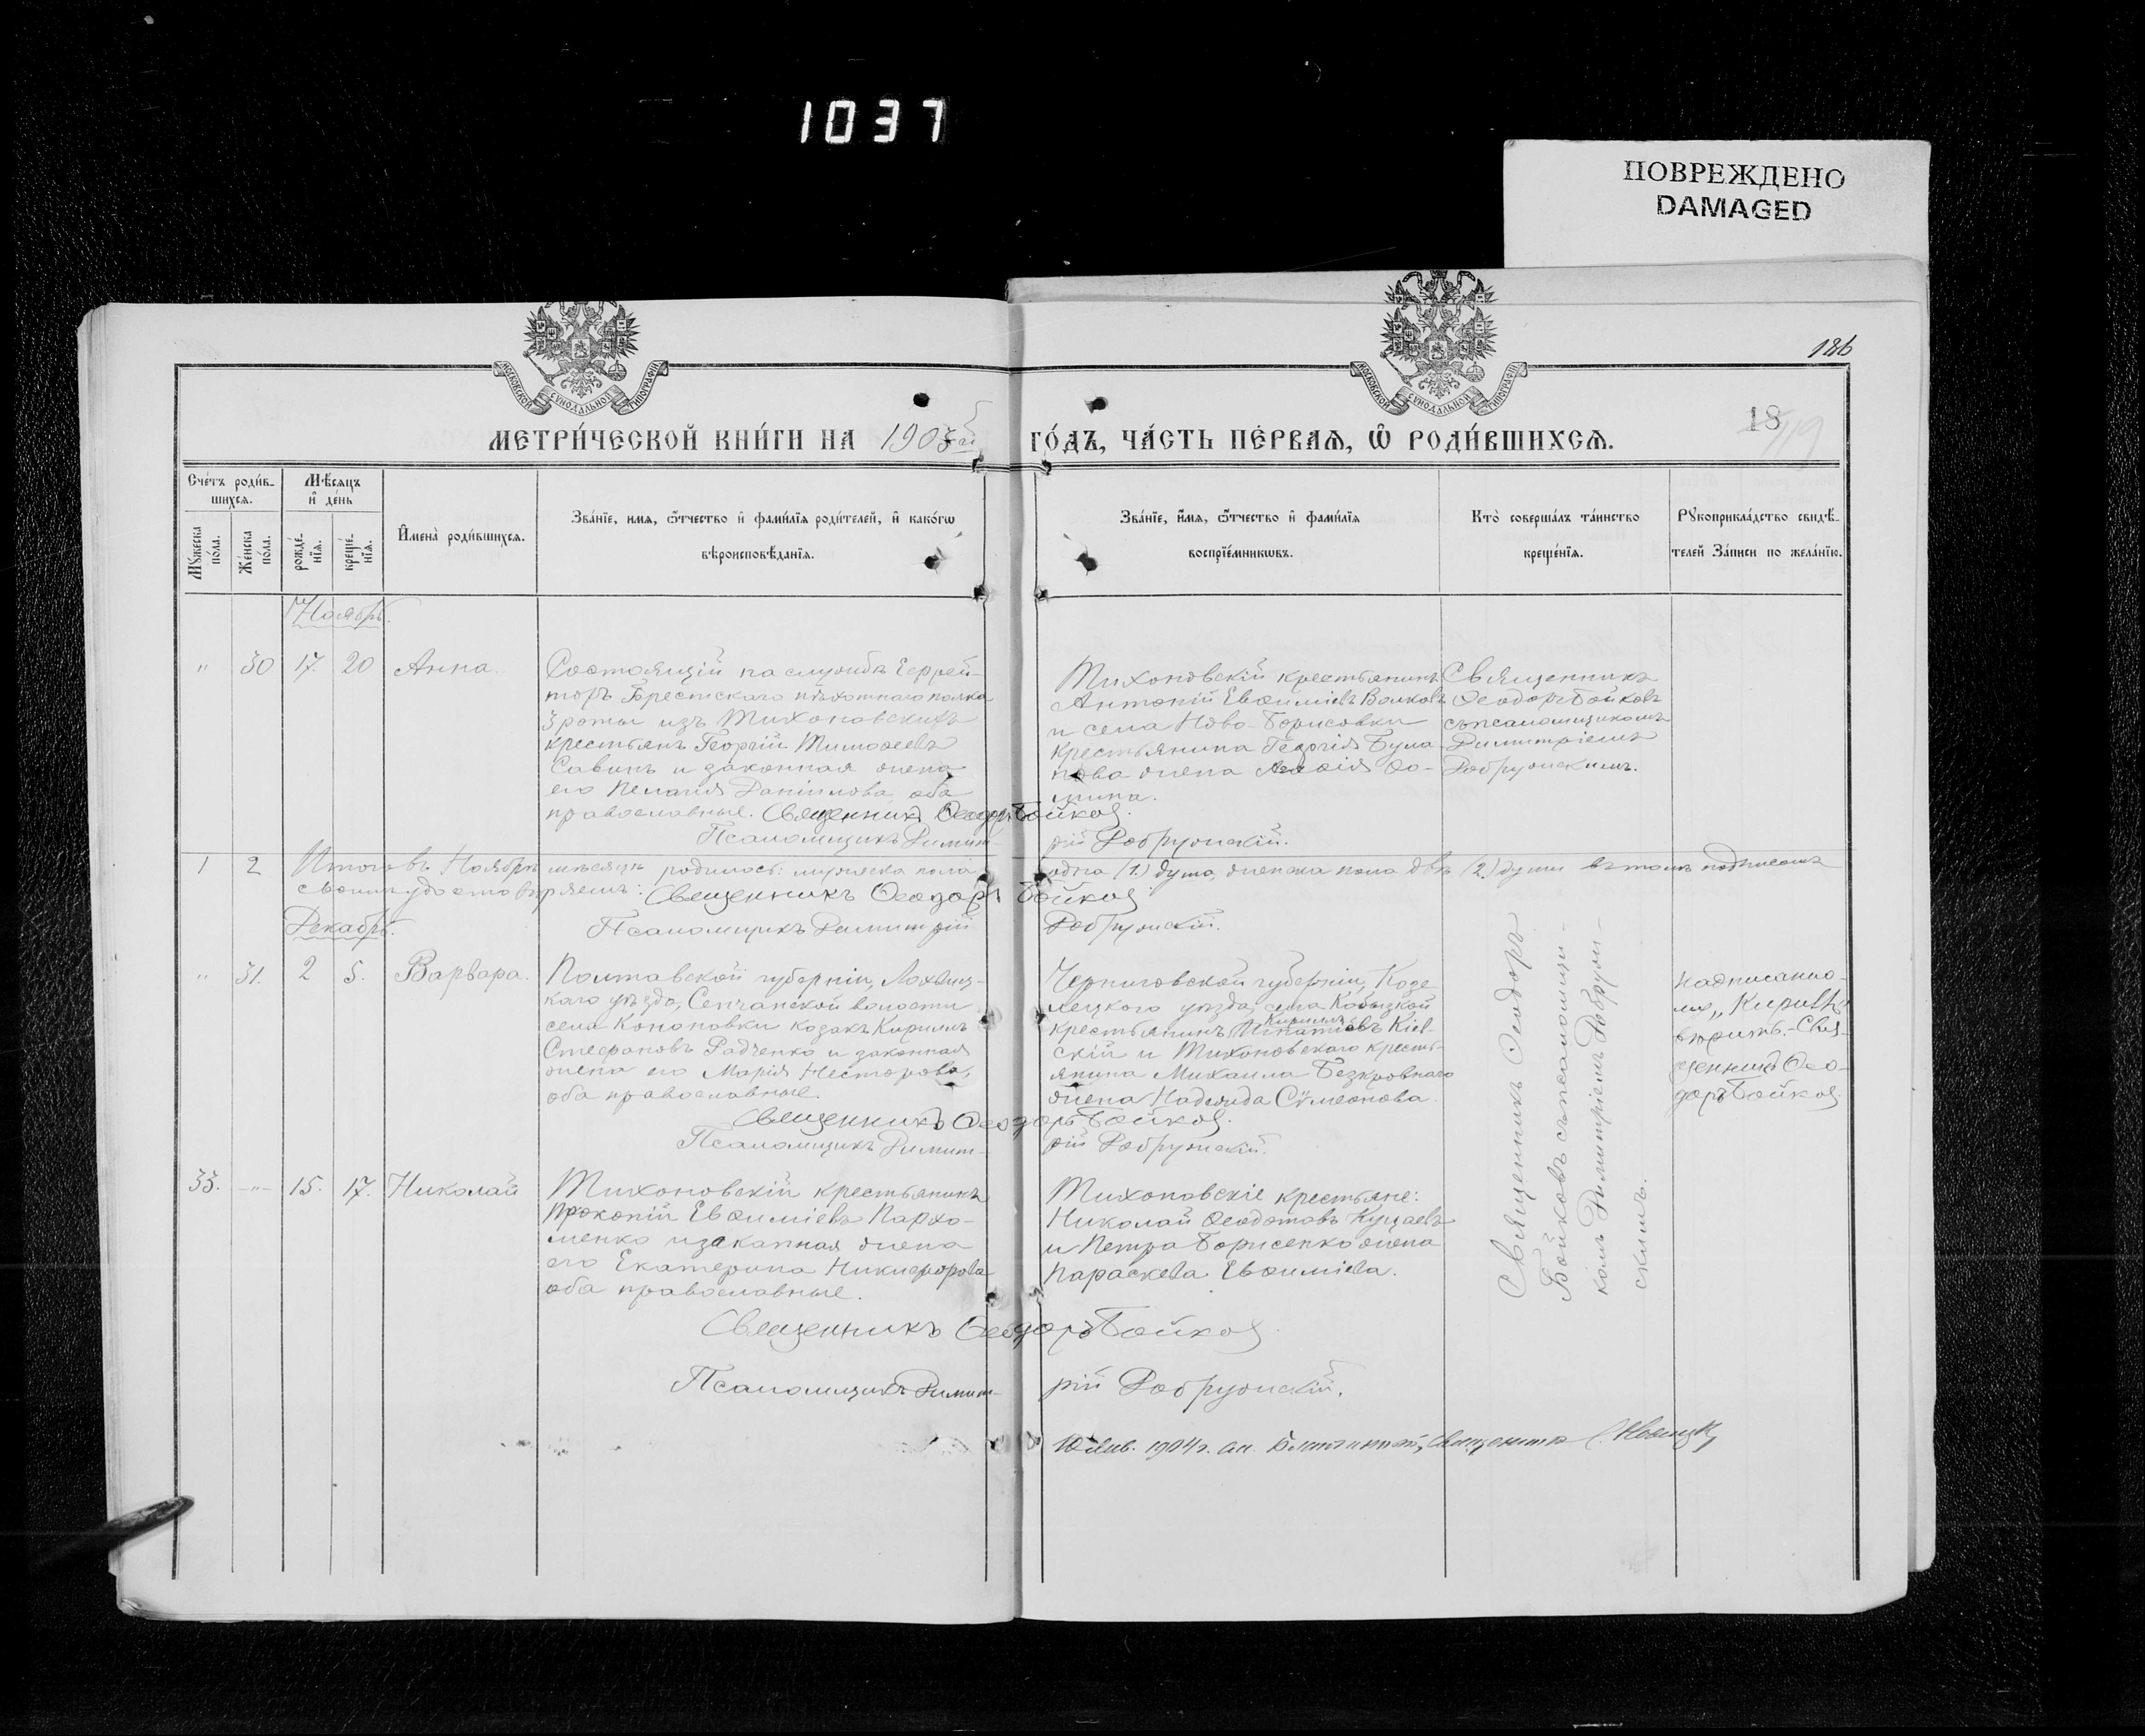 1037
ПОВРЕЖДЕНО
DAMAGED
МОСКОВСКОЙ СѴНОДАЛЬНОЙ ТИПОГРАФІИ
МОСКОВСКОЙ СѴНОДАЛЬНОЙ ТИПОГРАФІИ
186
18
119
МЕТРИ́ЧЕСКОЙ КНИ́ГИ НА 1903й
ГО́ДЪ, ЧА́СТЬ ПЕ́РВАѦ, Ѡ҆ РОДИ́ВШИХСѦ.
Сче́тъ роди́в-
шихсѧ.
Мѣ́сѧцъ
и҆ де́нь
Мꙋ́жеска
по́ла.
Же́нска
по́ла.
рожде́-
нїѧ.
креще́-
нїѧ.
И҆мена̀ роди́вшихсѧ.
Зва́нїе, имѧ, ѻ҆́тчество и҆ фами́лїѧ роди́телей, и҆ како́гѡ
вѣроисповѣ́данїѧ.
Зва́нїе, и҆́мѧ, ѻ҆́тчество и҆ фами́лїѧ
воспрїе́мникѡвъ.
Кто̀ соверша́лъ та́инство
креще́нїѧ.
Рꙋкоприкла́дство свидѣ́-
телей За́писи по жела́нїю.
Ноябрь.
" 30 17. 20 Анна.
Состоящій на службѣ Ефрей-
торъ Брестскаго пѣхотнаго полка
3 роты изъ Тихоновскихъ
крестьянъ Георгій Тимоѳеевъ
Савинъ и законная жена
его Пелагія Даніилова, оба
православные. Священникъ Ѳеодоръ Бойковъ.
Псаломщикъ Димит-
рій Добружскій.
Тихоновскій крестьянинъ
Антоній Евѳиміевъ Волковъ
и села Ново-Борисовки
крестьянина Георгія Була-
нова жена Ѳо-
мина.
Священникъ
Ѳеодоръ Бойковъ
съ псаломщикомъ
Димитріемъ
Добружскимъ.
1 2 Итого въ Ноябрѣ мѣсяцѣ родилось: мужеска пола одна (1) душа, женска пола двѣ (2) души въ томъ подписомъ
своимъ удостовѣряемъ: Священникъ Ѳеодоръ Бойковъ
Псаломщикъ Димитрій Добружскій.
Декабрь.
" 31. 2 5. Варвара.
Полтавской губерніи, Лохвиц-
каго уѣзда, Сенчанской волости
села Кононовки козакъ Кириллъ
Стефановъ Радченко и законная
жена его Марія Несторова,
оба православные.
Священникъ Ѳеодоръ Бойковъ.
Псаломщикъ Димит-
рій Добружскій.
Черниговской губерніи, Козе
лецкого уѣзда, села Кобыжской
Кириллъ
крестьянинъ Игнатіевъ Кіев-
скій и Тихоновскаго кресть-
янина Михаила Безкровнаго
жена Надежда Сѵмеонова.
Священникъ Ѳеодоръ
Бойковъ съ псаломщи-
комъ Димитріемъ Добруж-
скимъ.
надписанно-
му "Кириллъ"
вѣрить.- Свя-
щенникъ Ѳео-
доръ Бойковъ.
33. -"- 15. 17. Николай
Тихоновскій крестьянинъ
Прокопій Евѳиміевъ Пархо-
менко и законная жена
его Екатерина Никифорова
оба православные.
Священникъ Ѳеодоръ Бойковъ.
Псаломщикъ Димит-
рій Добружскій.
Тихоновскіе крестьяне:
Николай Ѳеодотовъ Куцаевъ
и Петра Борисенко жена
Параскева Евѳиміева.
10 Янв. 1904 г. Благочинный, Священникъ